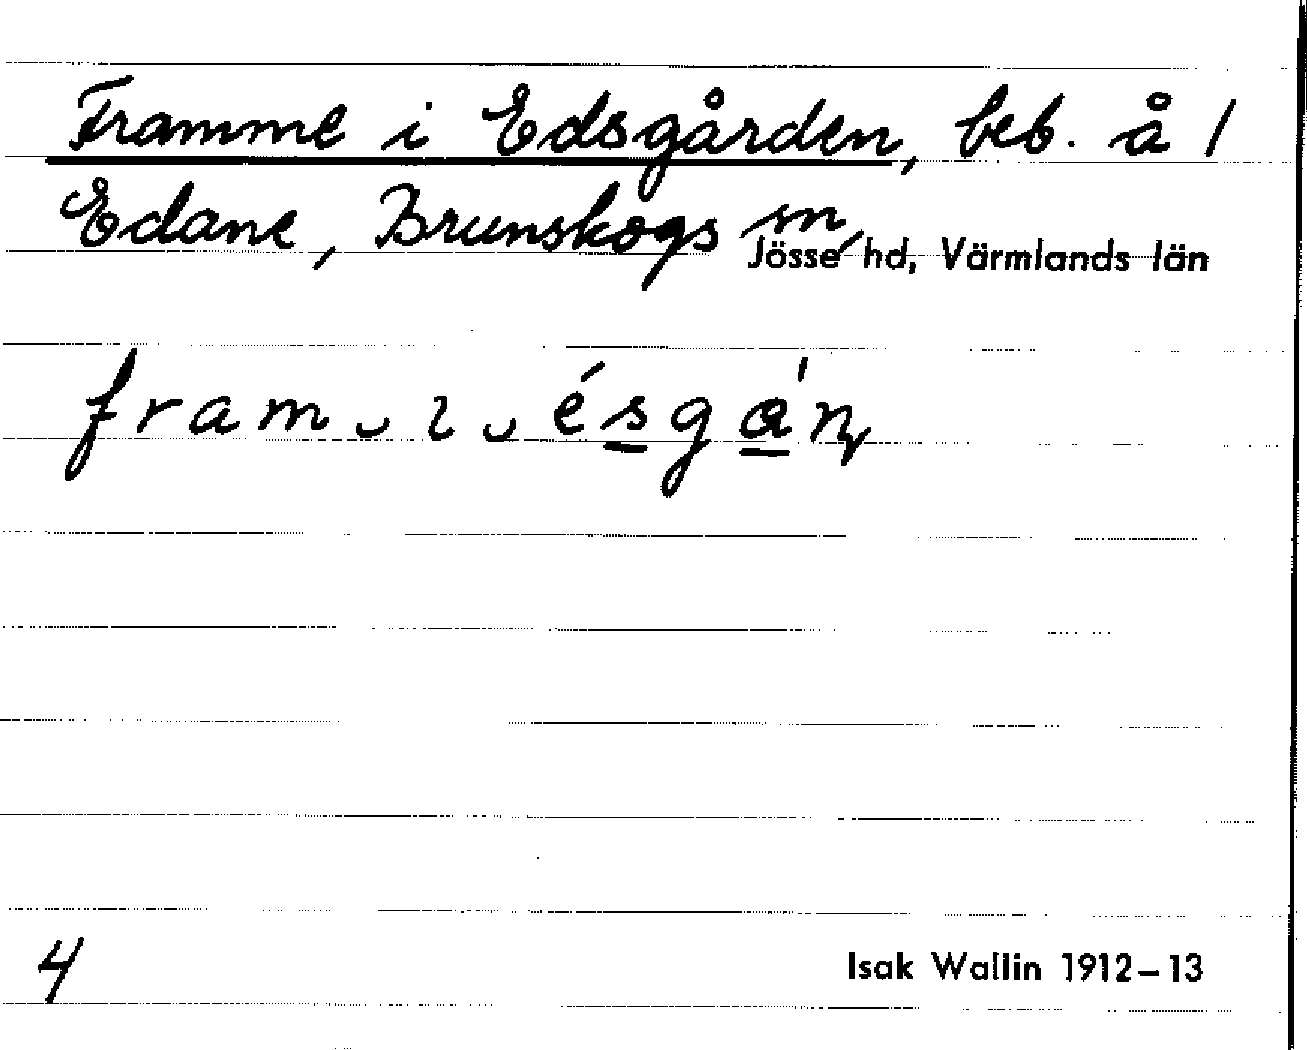 Framme i Edsgården, beb. å 1
Edane, Brunskogs sn,
Jösse hd, Värmlands län
fram ɩ ésgán
4
Isak Wallin 1912–13